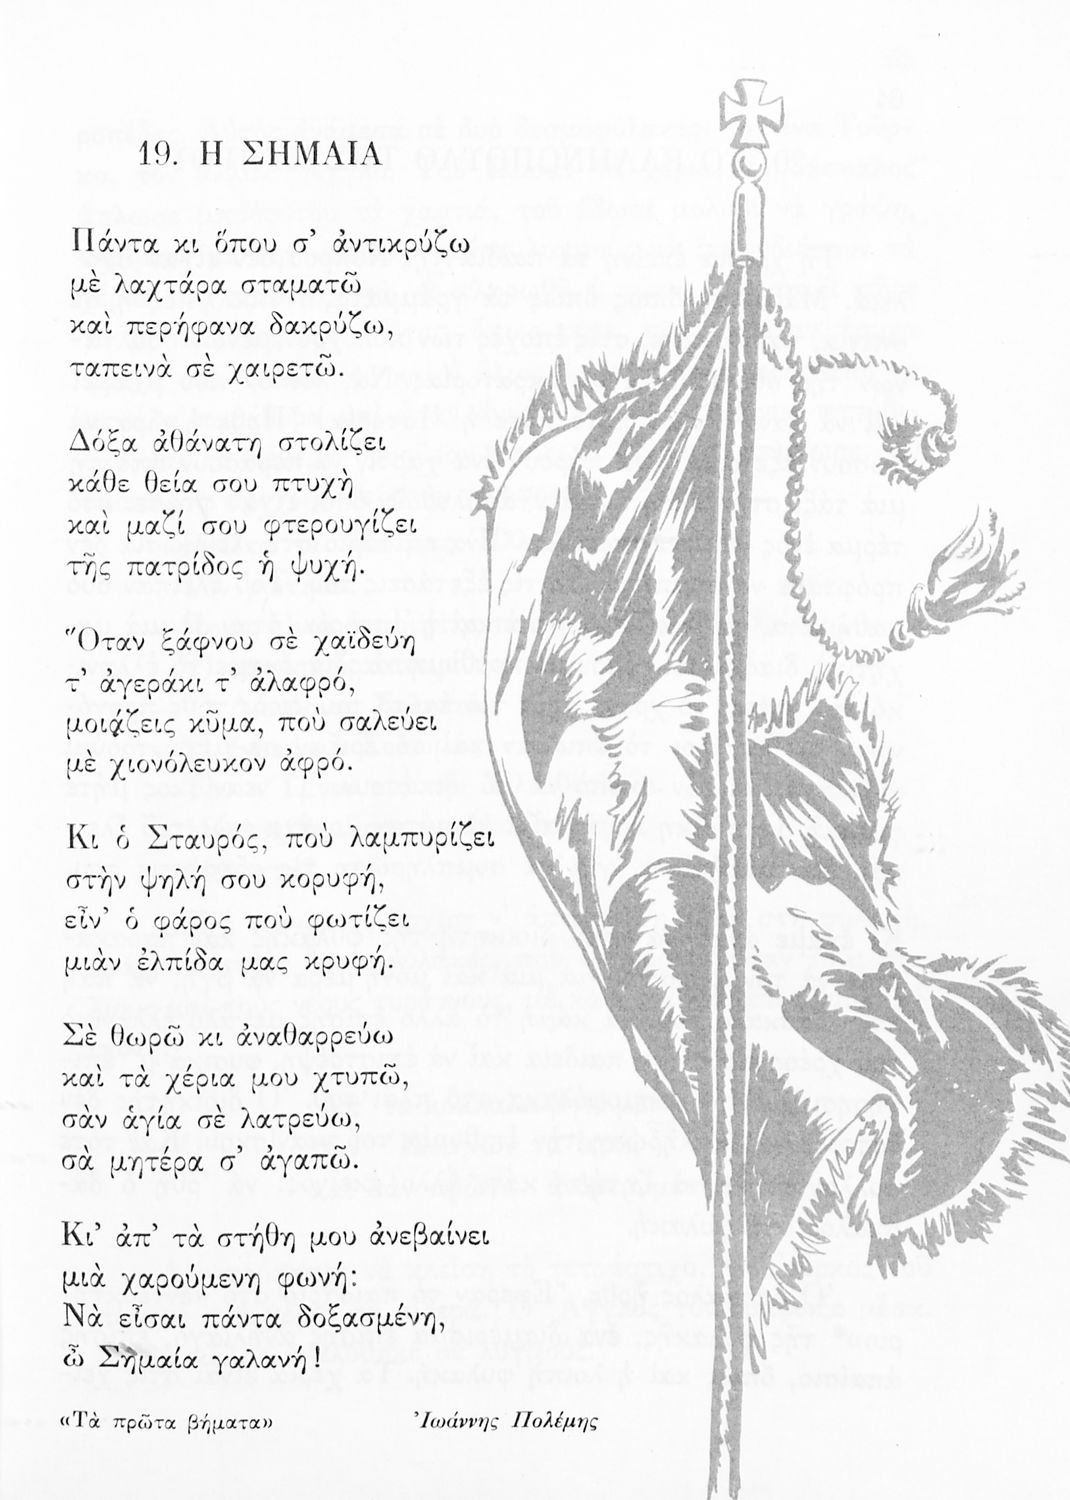 19. Η ΣΗΜΑΙΑ
Πάντα κι ὅπου σ' ἀντικρύζω
μὲ λαχτάρα σταματῶ
καὶ περήφανα δακρύζω,
ταπεινὰ σὲ χαιρετῶ.
Δόξα ἀθάνατη στολίζει
κάθε θεία σου πτυχὴ
καὶ μαζί σου φτερουγίζει
τῆς πατρίδος ἡ ψυχή.
Ὅταν ξάφνου σὲ χαϊδεύη
τ' ἀγεράκι τ' ἀλαφρό,
μοιάζεις κῦμα, ποὺ σαλεύει
μὲ χιονόλευκον ἀφρό.
Κι ὁ Σταυρός, ποὺ λαμπυρίζει
στὴν ψηλή σου κορυφή,
εἶν' ὁ φάρος ποὺ φωτίζει
μιὰν ἐλπίδα μας κρυφή.
Σὲ θωρῶ κι ἀναθαρρεύω
καὶ τὰ χέρια μου χτυπῶ,
σὰν ἁγία σὲ λατρεύω,
σὰ μητέρα σ' ἀγαπῶ.
Κι' ἀπ' τὰ στήθη μου ἀνεβαίνει
μιὰ χαρούμενη φωνή:
Νὰ εἶσαι πάντα δοξασμένη,
ὦ Σημαία γαλανή!
«Τὰ πρῶτα βήματα» Ἰωάννης Πολέμης